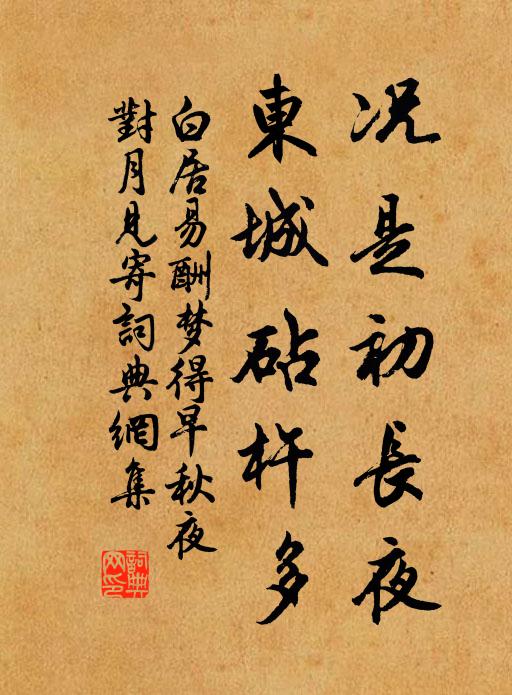 况是初長夜
東城砧杵多
白居易酬梦得早秋夜
對月見寄詞典網集
詞典
网印